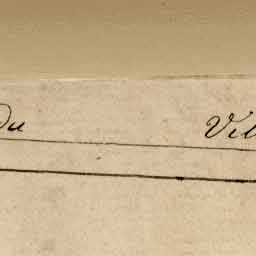 du Vil